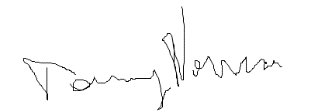 Tommy Norman